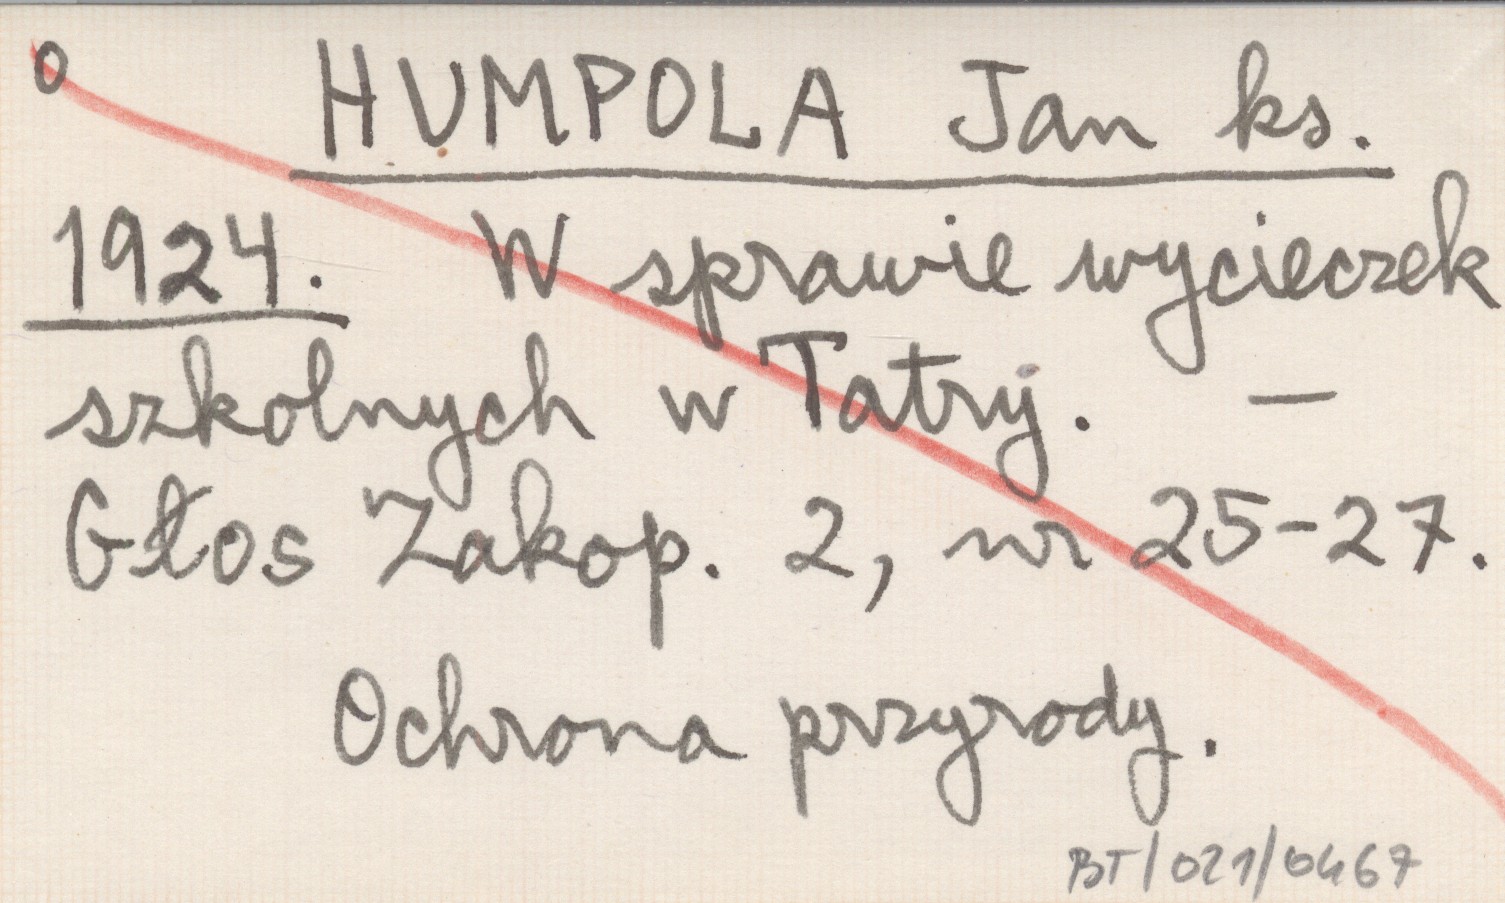 o HUMPOLA Jan ks.
1924. W sprawie wycieczek
szkolnych w Tatry. —
Głos Zakop. 2, nr 25-27.
Ochrona przyrody.
BT/021/0467